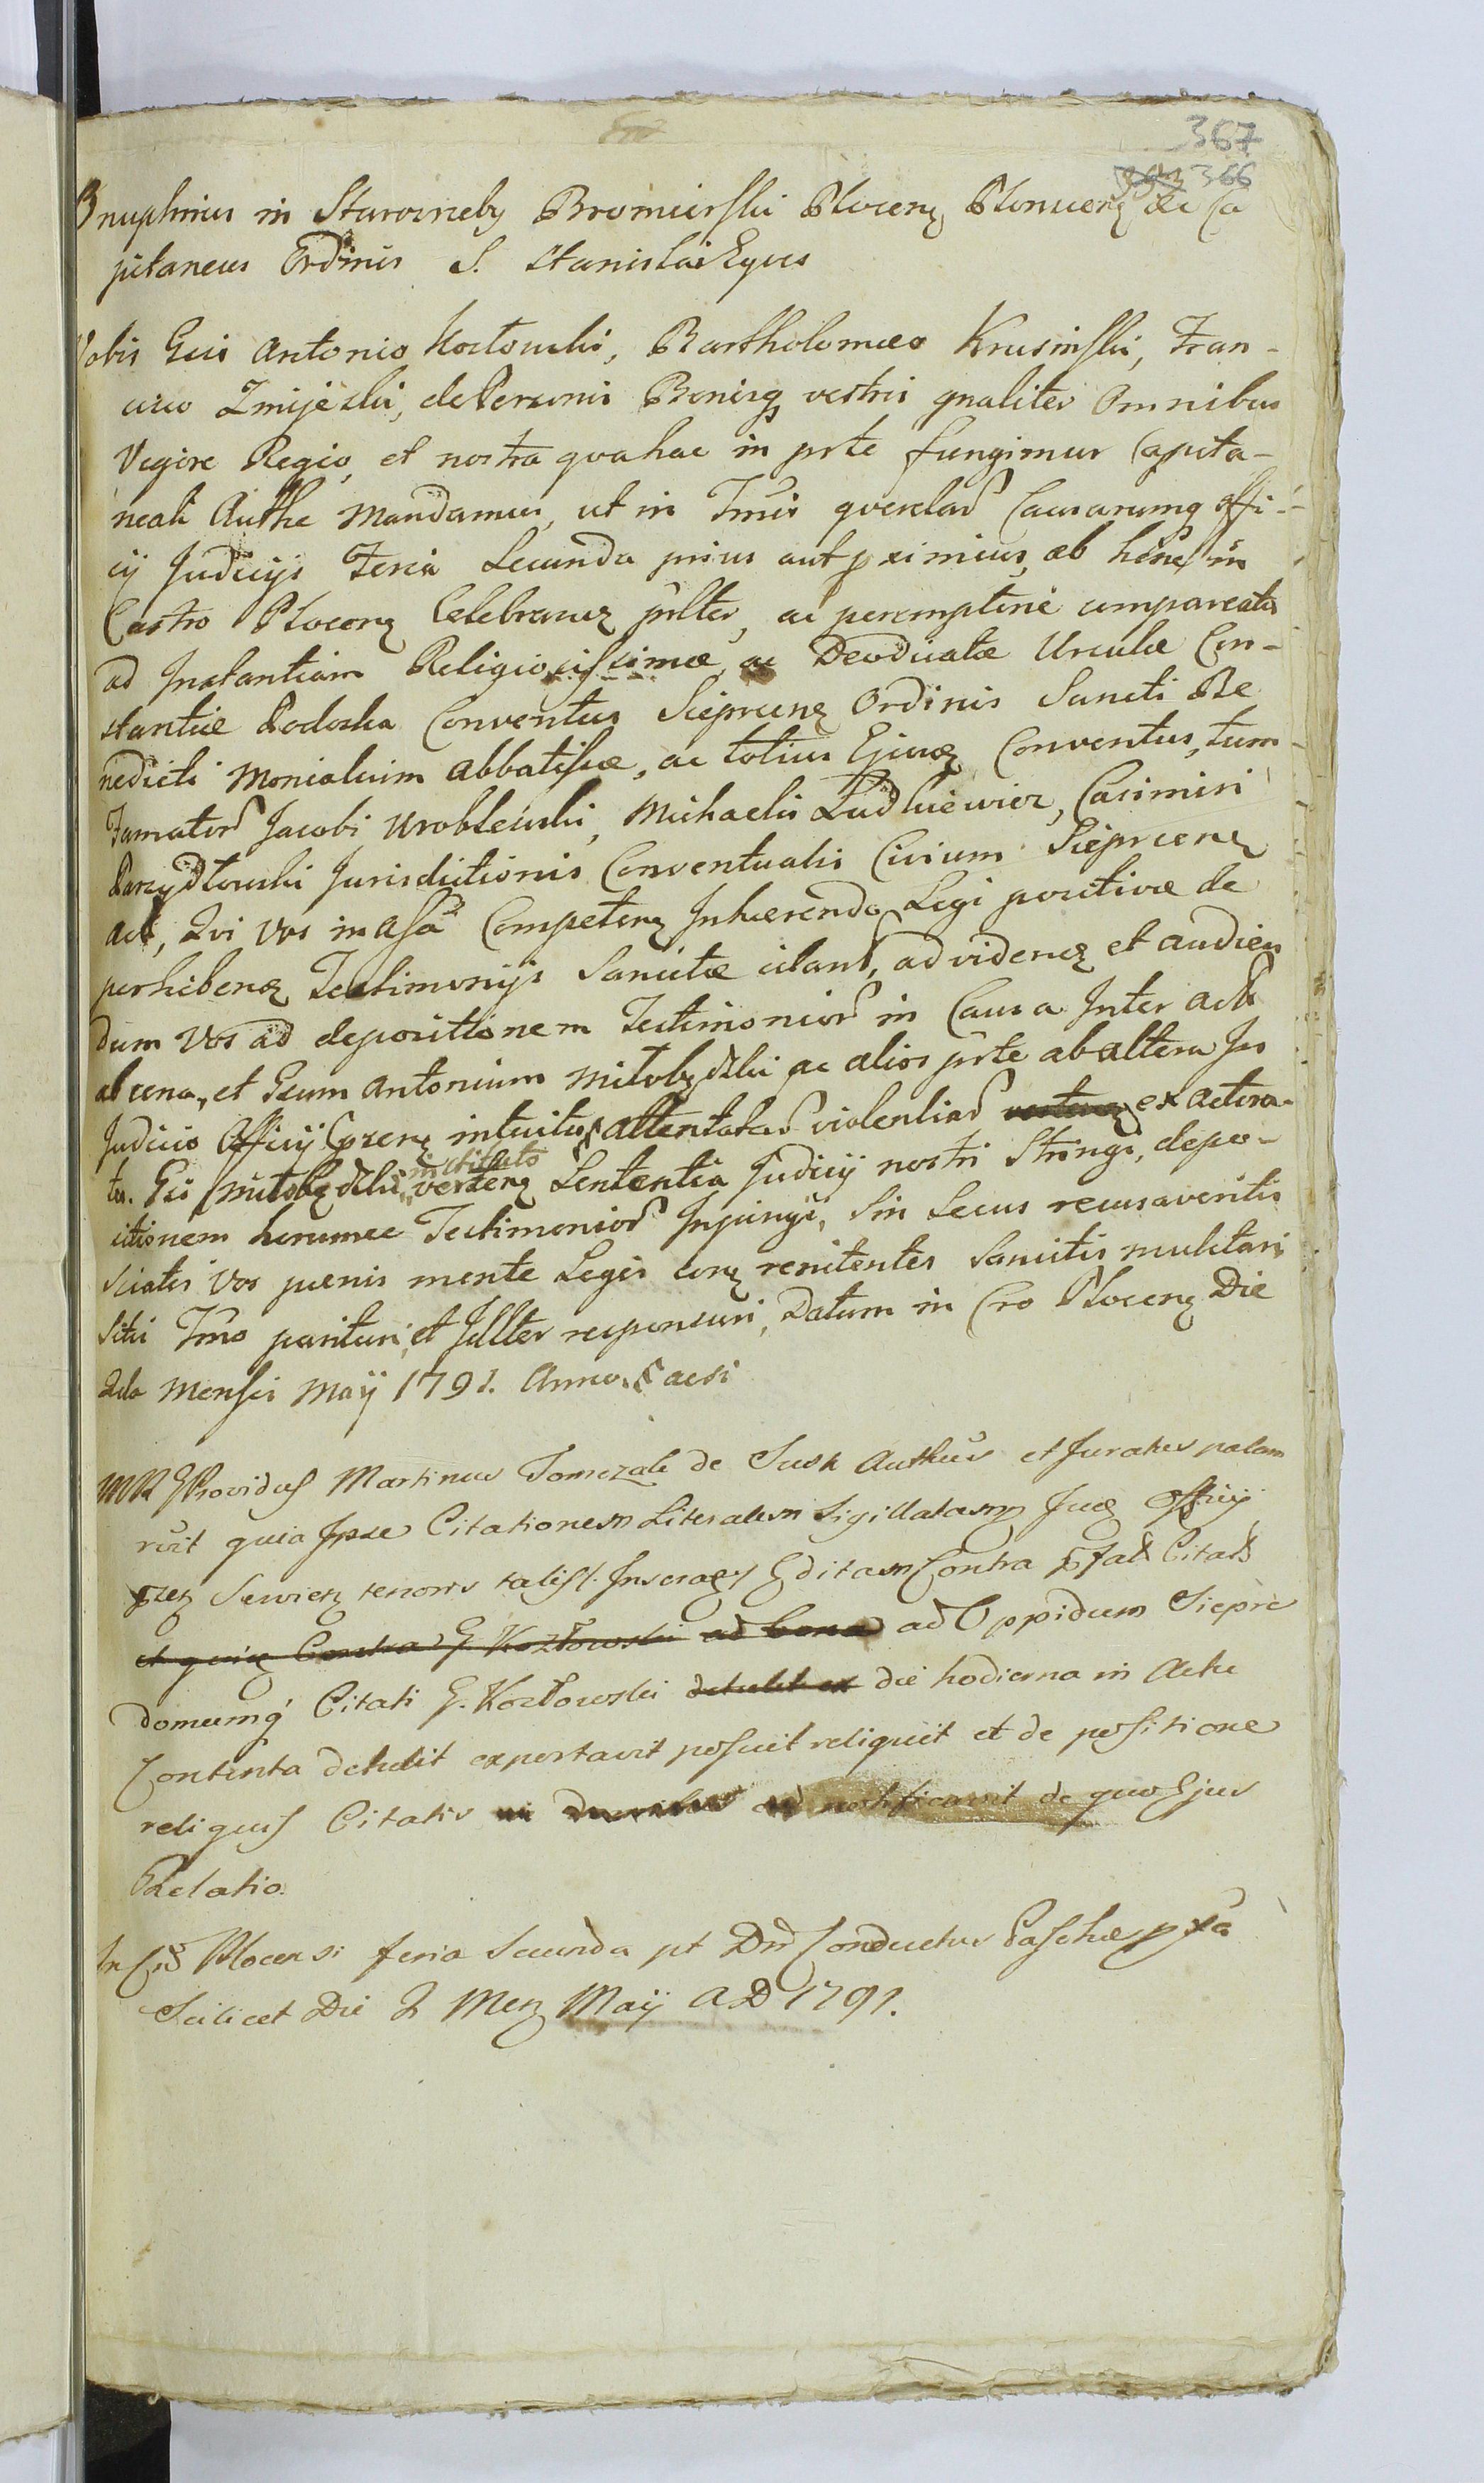 367
366
Onuphrius in Starorzeby Bromierski Plocens Plonscens &c Ca
pitaneus Ordinis S. Stanislai Eques
Vobis Gsis Antonio Kozłowski, Bartholomeo Krusinski, Fran-
cisco Zmijeski, de Personis Bonisq vestris gnaliter Omnibus
Vigore Regio, et nostra qua hac in prte fungimur Capita-
neali Autte Mandamus, ut in Tmis querelar Causarumq offi-
cij Judicijs Feria Secunda prius aut proximius, ab hinc in
Castro Plocens Celebrans prlter, ac peremptorie compareatis
ad Instantiam Religiosissimæ, ac Deodicatæ Ursulæ Con-
stantiæ Podoska Conventus Sieprcens Ordinis Sancti Be
nedicti Monialium Abbatissæ, ac totius Ejusd Conventus, tum
Famator Jacobi Wroblewski, Michaelis Ludkiewicz, Casimiri
Parzydłowski Jurisdictionis Conventualis Civium Sieprcens
Act, Qui Vos in Assa Competens Inhærendo Legi positivæ de
perhibens Testimonijs Sancitæ citant, ad videns et audien
dum Vos ad depositionem Testimonior in Causa Inter Act
ab una, et Gsum Antonium Miłobędzki ac alios prte ab altera In
Judicio Officij intuitu attentatar violentiar vertens ex actora-
tu. Gsi Miłobędzki institato vertens Sententia Judicij nostri Stringi, depo-
sitionem horumce Testimonior Injungi, Sin Secus recusaveritis
Sciatis Vos pænis mente Legis cons renitentes Sancitis mulctari
Sitis Tmo parituri, et Jdlter responsuri, Datum in Cro Plocens Die
2da Mensis Maij 1791. Anno
Providus Martinus Tomczak de Susk Authus et Juratus palam
rvit quia Ipse Citationem Literalem Sigillatamq Jud Officij
tenoris talis Editam Contra Citat
et quidq Contra G. Kozłowski ad bona ad Oppidum Sieprc
domumq Citati G. Kozłowski detulit ex die hodierna in Actu
Contenta detulit exportavit posuit reliquit et de positione
reliquis Citatis notificavit de quo Ejus
Relatio.
In Plocensi feria Secunda pt Dnc Conductus Paschæ pxa
Scilicet Die 2 Mens Maij AD 1791.